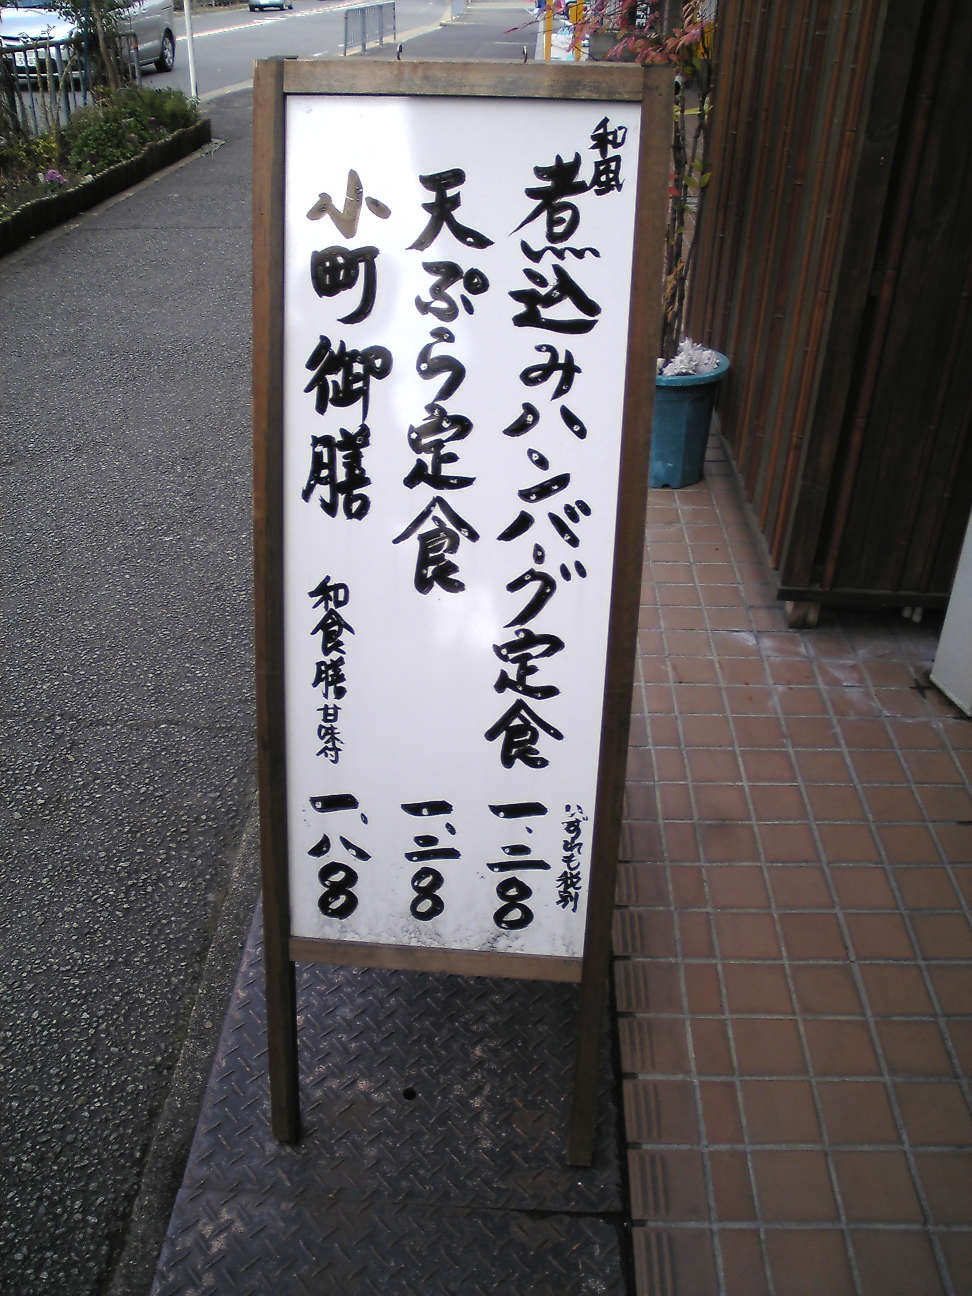 和風
煮込みハンバーグ定食
いずれも税別
一、二〇〇
天ぷら定食
一、二〇〇
小町御膳
和食膳甘味付
一、八〇〇